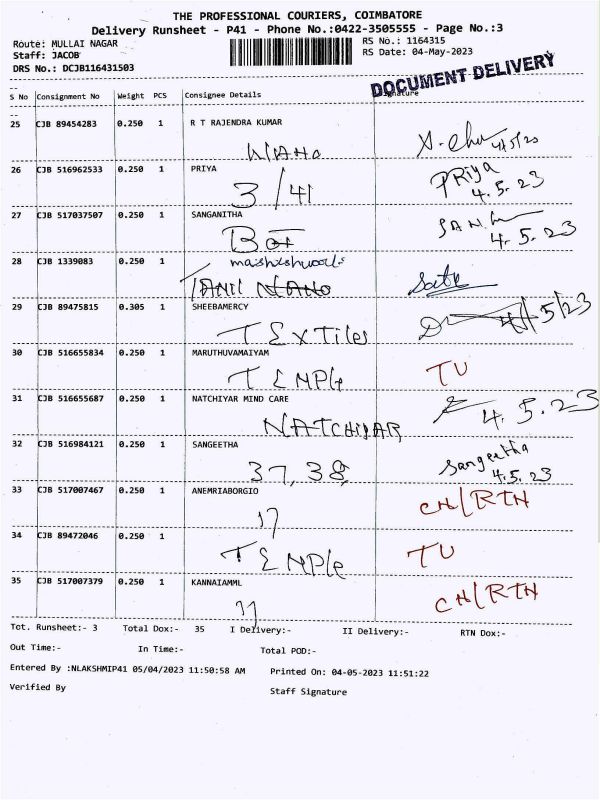 THE PROFESSIONAL COURIERS, COIMBATORE
Delivery Runsheet - P41 - Phone No.:0422-3505555 - Page No.:3
Route: MULLAI NAGAR
RS No.: 1164315
Staff: JACOB
RS Date: 04-May-2023
DRS No.: DCJB116431503
DOCUMENT DELIVERY
S No Consignment No Weight PCS Consignee Details Signature
25 CJB 89454283 0.250 1 R T RAJENDRA KUMAR
4/5/23
26 CJB 516962533 0.250 1 PRIYA
3/41 PRiya 4.5.23
27 CJB 517037507 0.250 1 SANGANITHA
4.5.23
28 CJB 1339083 0.250 1
TAMIL
29 CJB 89475815 0.305 1 SHEEBAMERCY
TEXTiles 4/5/23
30 CJB 516655834 0.250 1 MARUTHUVAMAIYAM
TEMPle TU
31 CJB 516655687 0.250 1 NATCHIYAR MIND CARE
NATCHIYAR 4.5.23
32 CJB 516984121 0.250 1 SANGEETHA
37,38, Sangeetha 4.5.23
33 CJB 517007467 0.250 1 ANEMRIABORGIO
17 CH/RTN
34 CJB 89472046 0.250 1
TEMPle TU
35 CJB 517007379 0.250 1 KANNAIAMML
CH/RTN
Tot. Runsheet:- 3 Total Dox:- 35 I Delivery:- II Delivery:- RTN Dox:-
Out Time:- In Time:- Total POD:-
Entered By :NLAKSHMIP41 05/04/2023 11:50:58 AM Printed On: 04-05-2023 11:51:22
Verified By Staff Signature